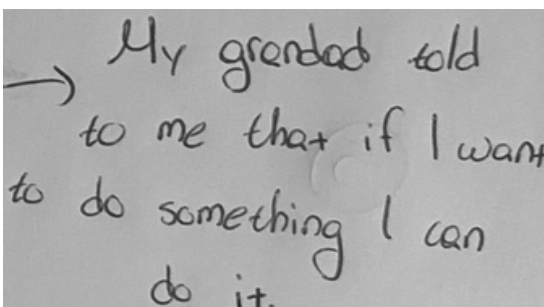 My grandad told
→ to me that if I want
to do something I can
do it.